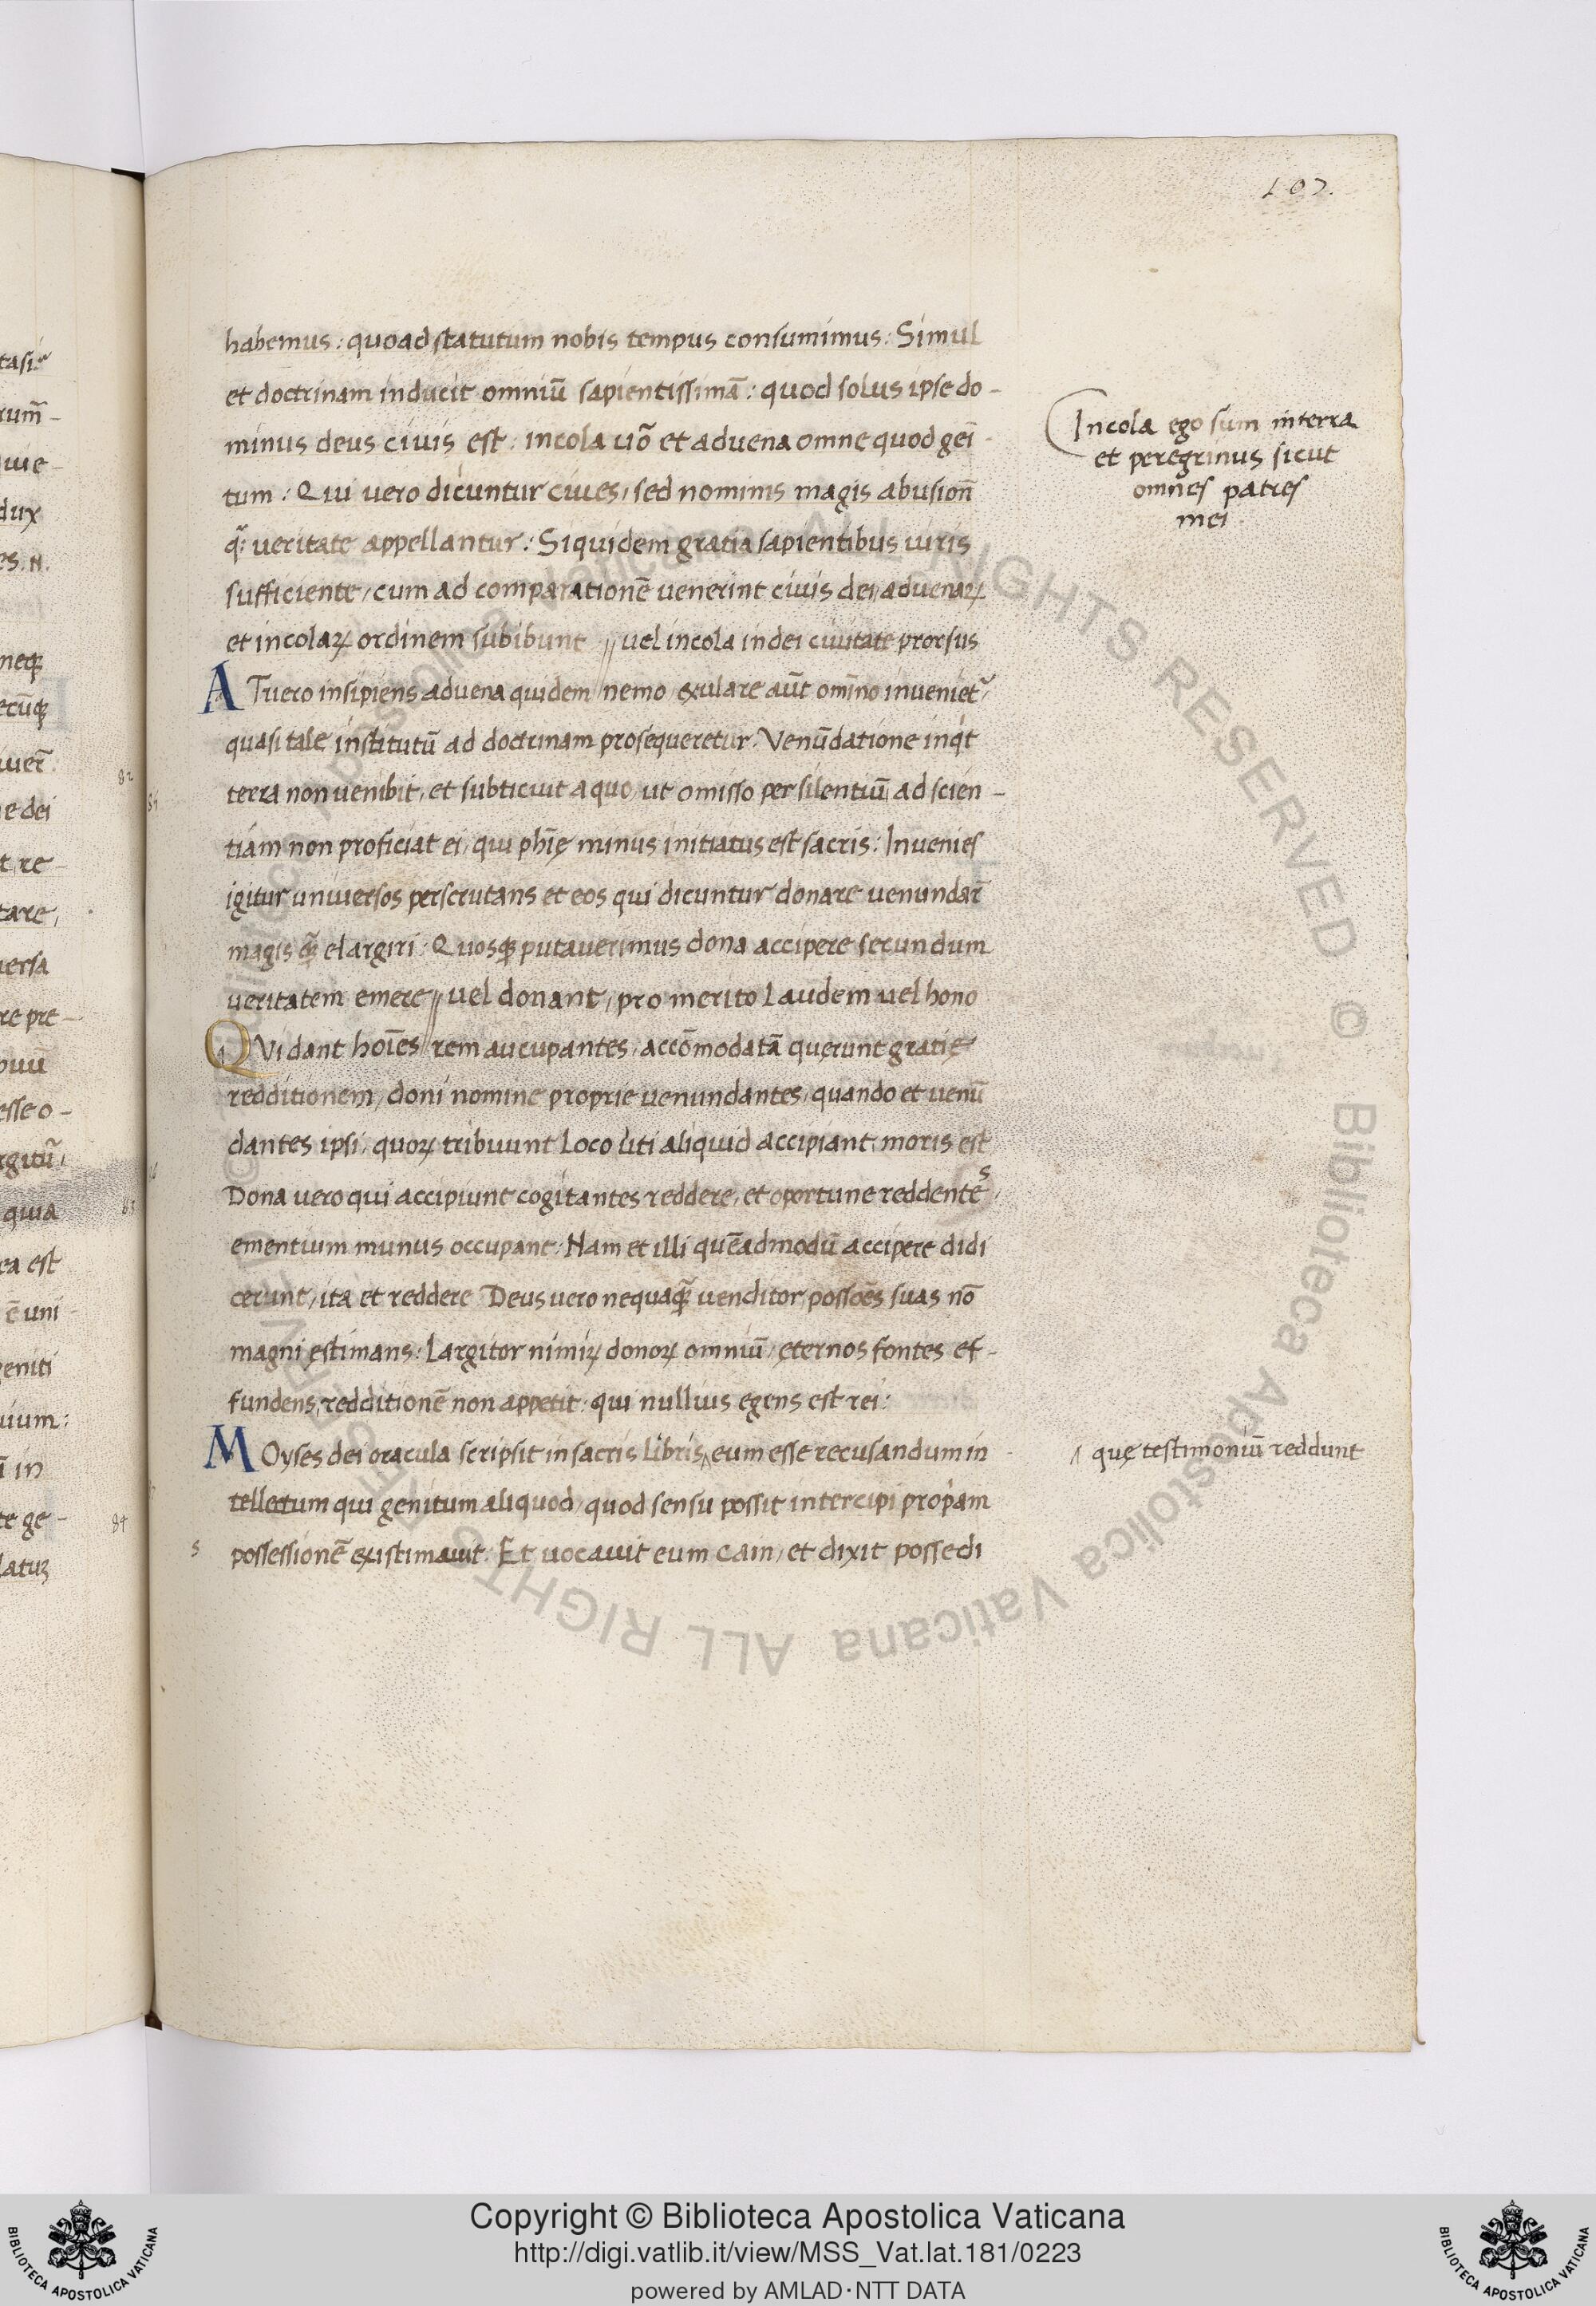 102.
habemus : quoad statutum nobis tempus consumimus : Simul
et doctrinam inducit omniũ sapientissimã : quod solus ipse do-
minus deus civis est : incola uõ et advena omne quod geñi-
tum : Qui vero dicuntur cives, sed nominis magis abusion̄
q̃ veritate appellantur : Siquidem gratia sapientibus iuris
sufficiente, cum ad comparationẽ venerint civis dei, advenaꝝ
et incolaꝝ ordinem subibunt // vel incola in dei civitate prorsus
ATvero insipiens advena quidem // nemo, exulare aũt omĩno invenietᷣ
quasi tale institutũ ad doctrinam prosequeretur. Venũdatione inq̇t
terra non venibit, et subticuit a quo, ut omisso per silentiũ ad scien-
tiam non proficiat ei, qui phĩę minus initiatus est sacris : Invenies
igitur universos perscrutans et eos qui dicuntur donare venundar̃
magis q̃ elargiri : Quosqꝫ putaverimus dona accipere secundum
veritatem emere // vel donant, pro merito laudem vel hono
QVi dant hoĩes // rem aucupantes, accõmodatã querunt gratię
redditionem, doni nomine proprie venundantes, quando et venũ
dantes ipsi, quoꝝ tribuunt loco uti aliquid accipiant, moris est
Dona vero qui accipiunt cogitantes reddere, et oportune reddentes,
ementium munus occupant : Nam et illi quẽadmodũ accipere didi
cerunt, ita et reddere Deus vero nequaq̃ venditor, possõẽs suas nõ
magni ęstimans : Largitor nimiꝝ donoꝝ omniũ, ęternos fontes ef-
fundens, redditionẽ non appetit : qui nullius egens est rei :
MOyses dei oracula scripsit in sacris libris, eum esse recusandum in
tellectum qui genitum aliquod, quod sensu possit intercipi prop̃am
possessionẽ existimavit : Et vocavit eum Cain, et dixit possedi
Incola ego sum in terra
et peregrinus sicut
omnes patres
mei
quę testimoniũ reddunt
Copyright © Biblioteca Apostolica Vaticana
http://digi.vatlib.it/view/MSS_Vat.lat.181/0223
powered by AMLAD·NTT DATA
BIBLIOTECA APOSTOLICA VATICANA
BIBLIOTECA APOSTOLICA VATICANA